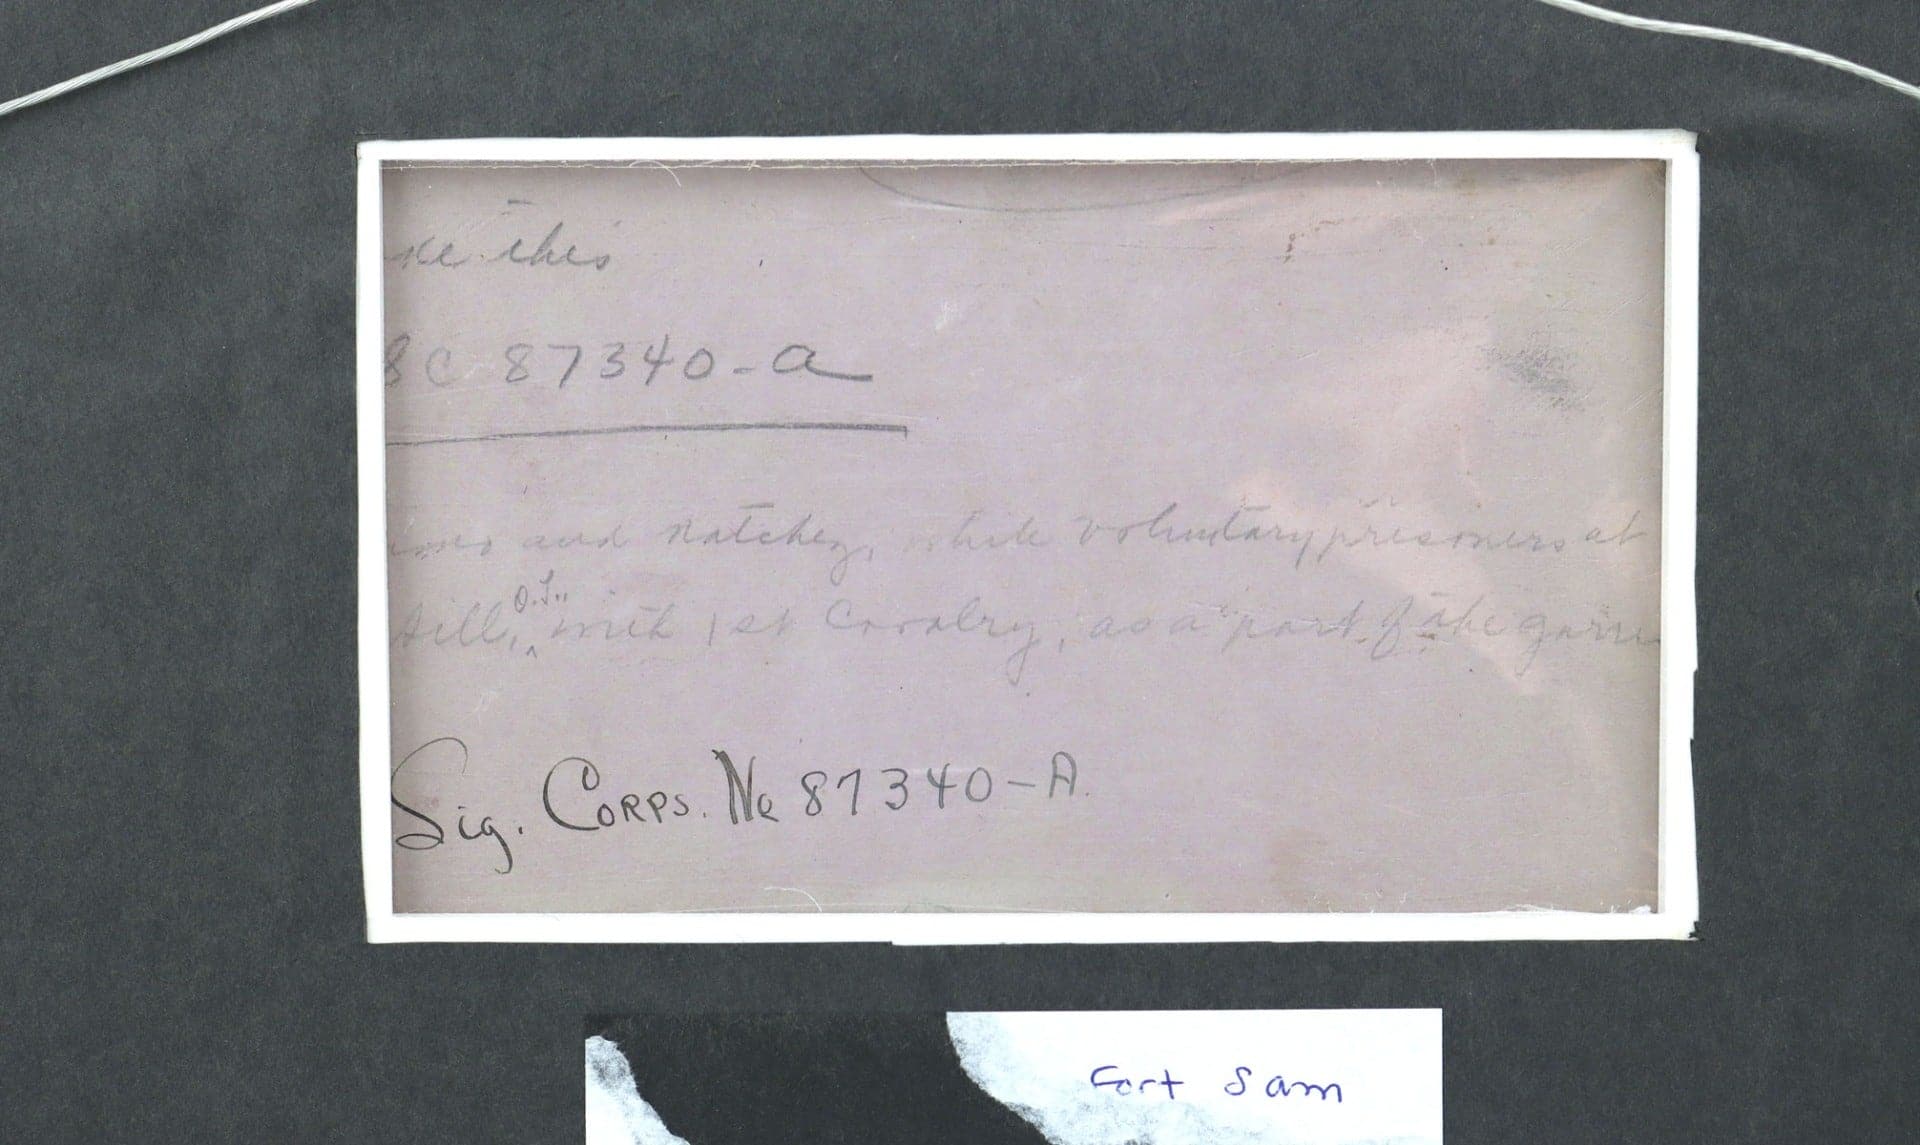 ke this
SC 87340-a
and Natchez, while voluntary prisoners at
Sill, O.T., with 1st Cavalry, as a part of the garri
Sig. Corps. No 87340-A.
Fort Sam